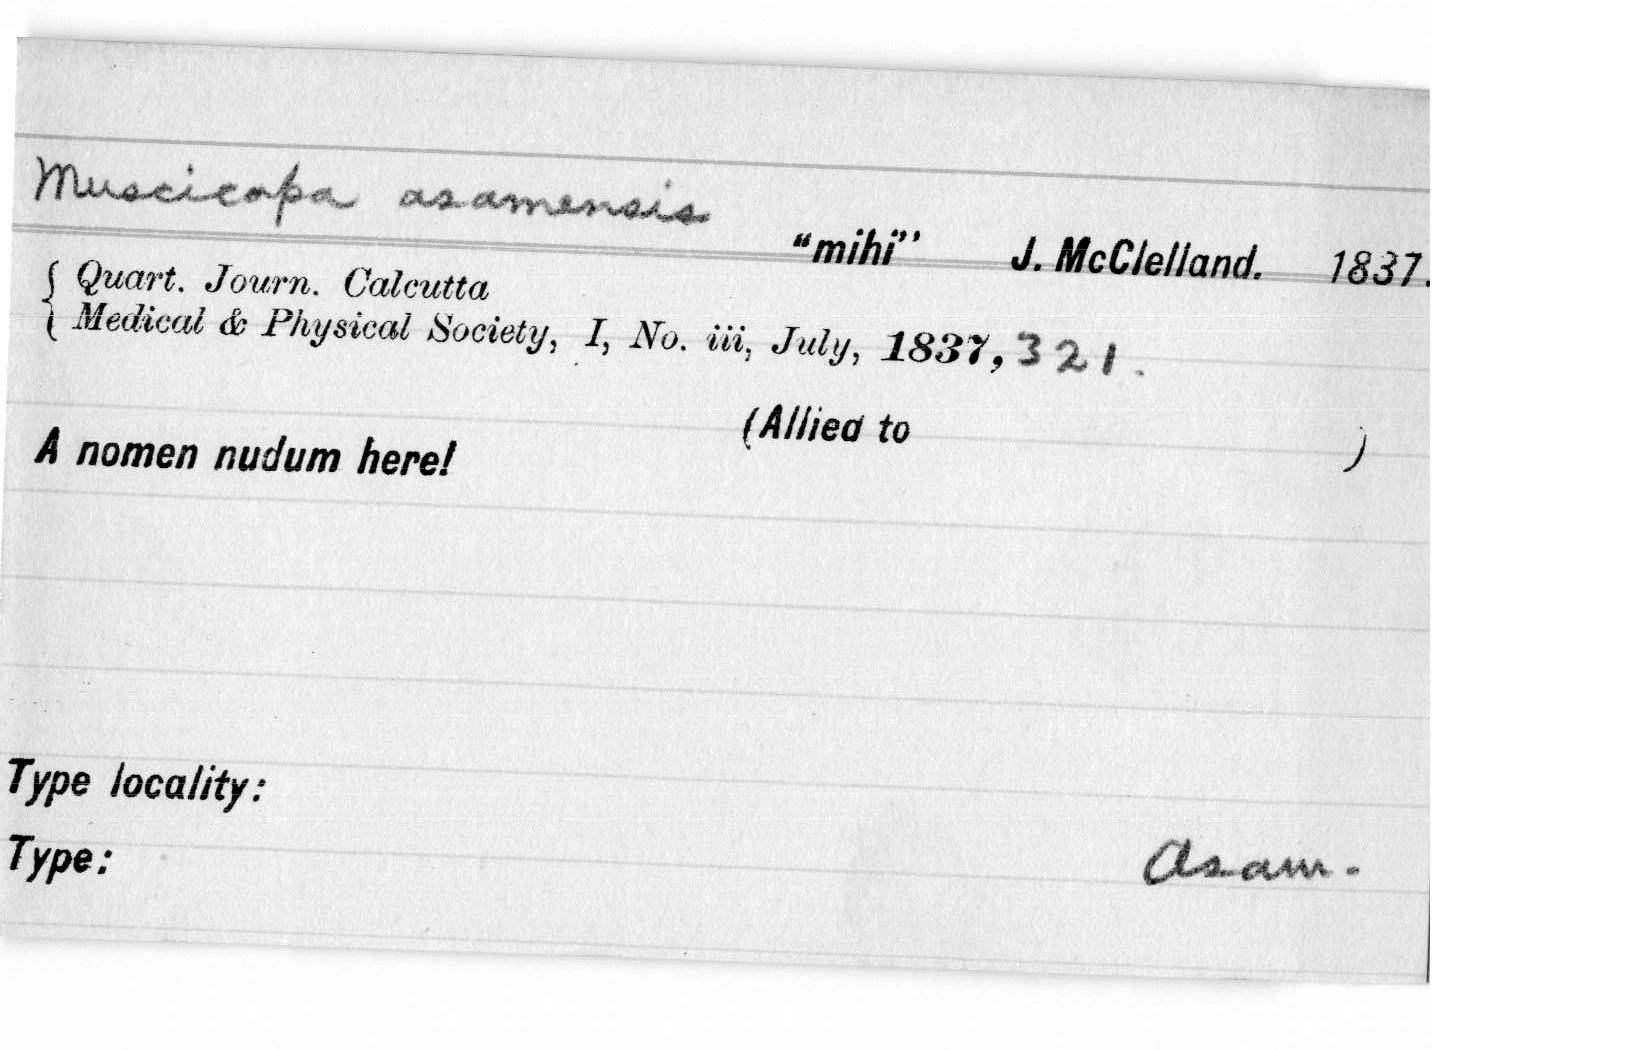 Muscicapa asamensis
"mihi" J. McClelland. 1837.
{ Quart. Journ. Calcutta
{ Medical & Physical Society, I, No. iii, July, 1837, 321.
(Allied to )
A nomen nudum here!
Type locality:
Type: Asam.